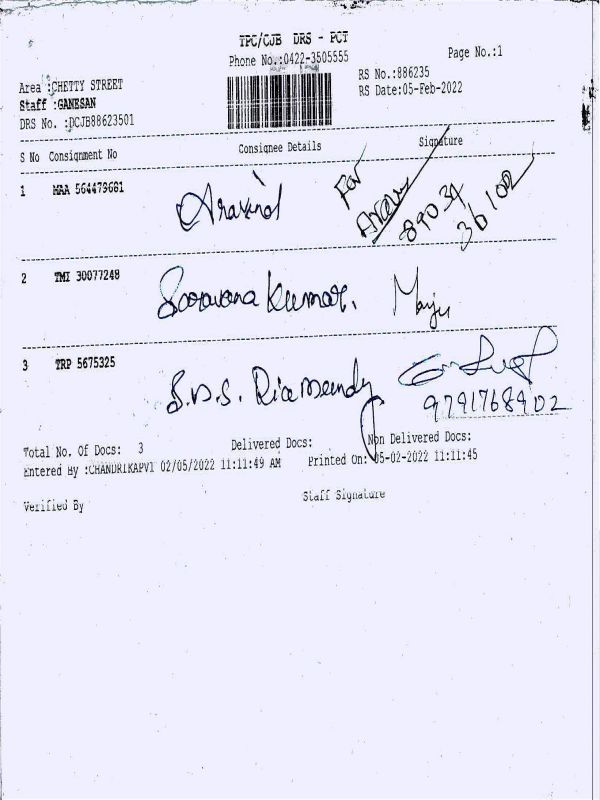 TPC/CJB DRS - PCT
Phone No.:0422-3505555
Page No.:1
Area :CHETTY STREET
RS No.:886235
Staff :GANESAN
RS Date:05-Feb-2022
DRS No. :DCJB88623501
S No Consignment No Consignee Details Signature
1 MAA 564479681 Aravind For
89034
36102
2 TMI 30077248 Saravana Kumar. Manju
3 TRP 5675325 S.D.S.
9791768902
Total No. Of Docs: 3 Delivered Docs: Non Delivered Docs:
Entered By :CHANDRIKAPVT 02/05/2022 11:11:49 AM Printed On: 05-02-2022 11:11:45
Verified By Staff Signature